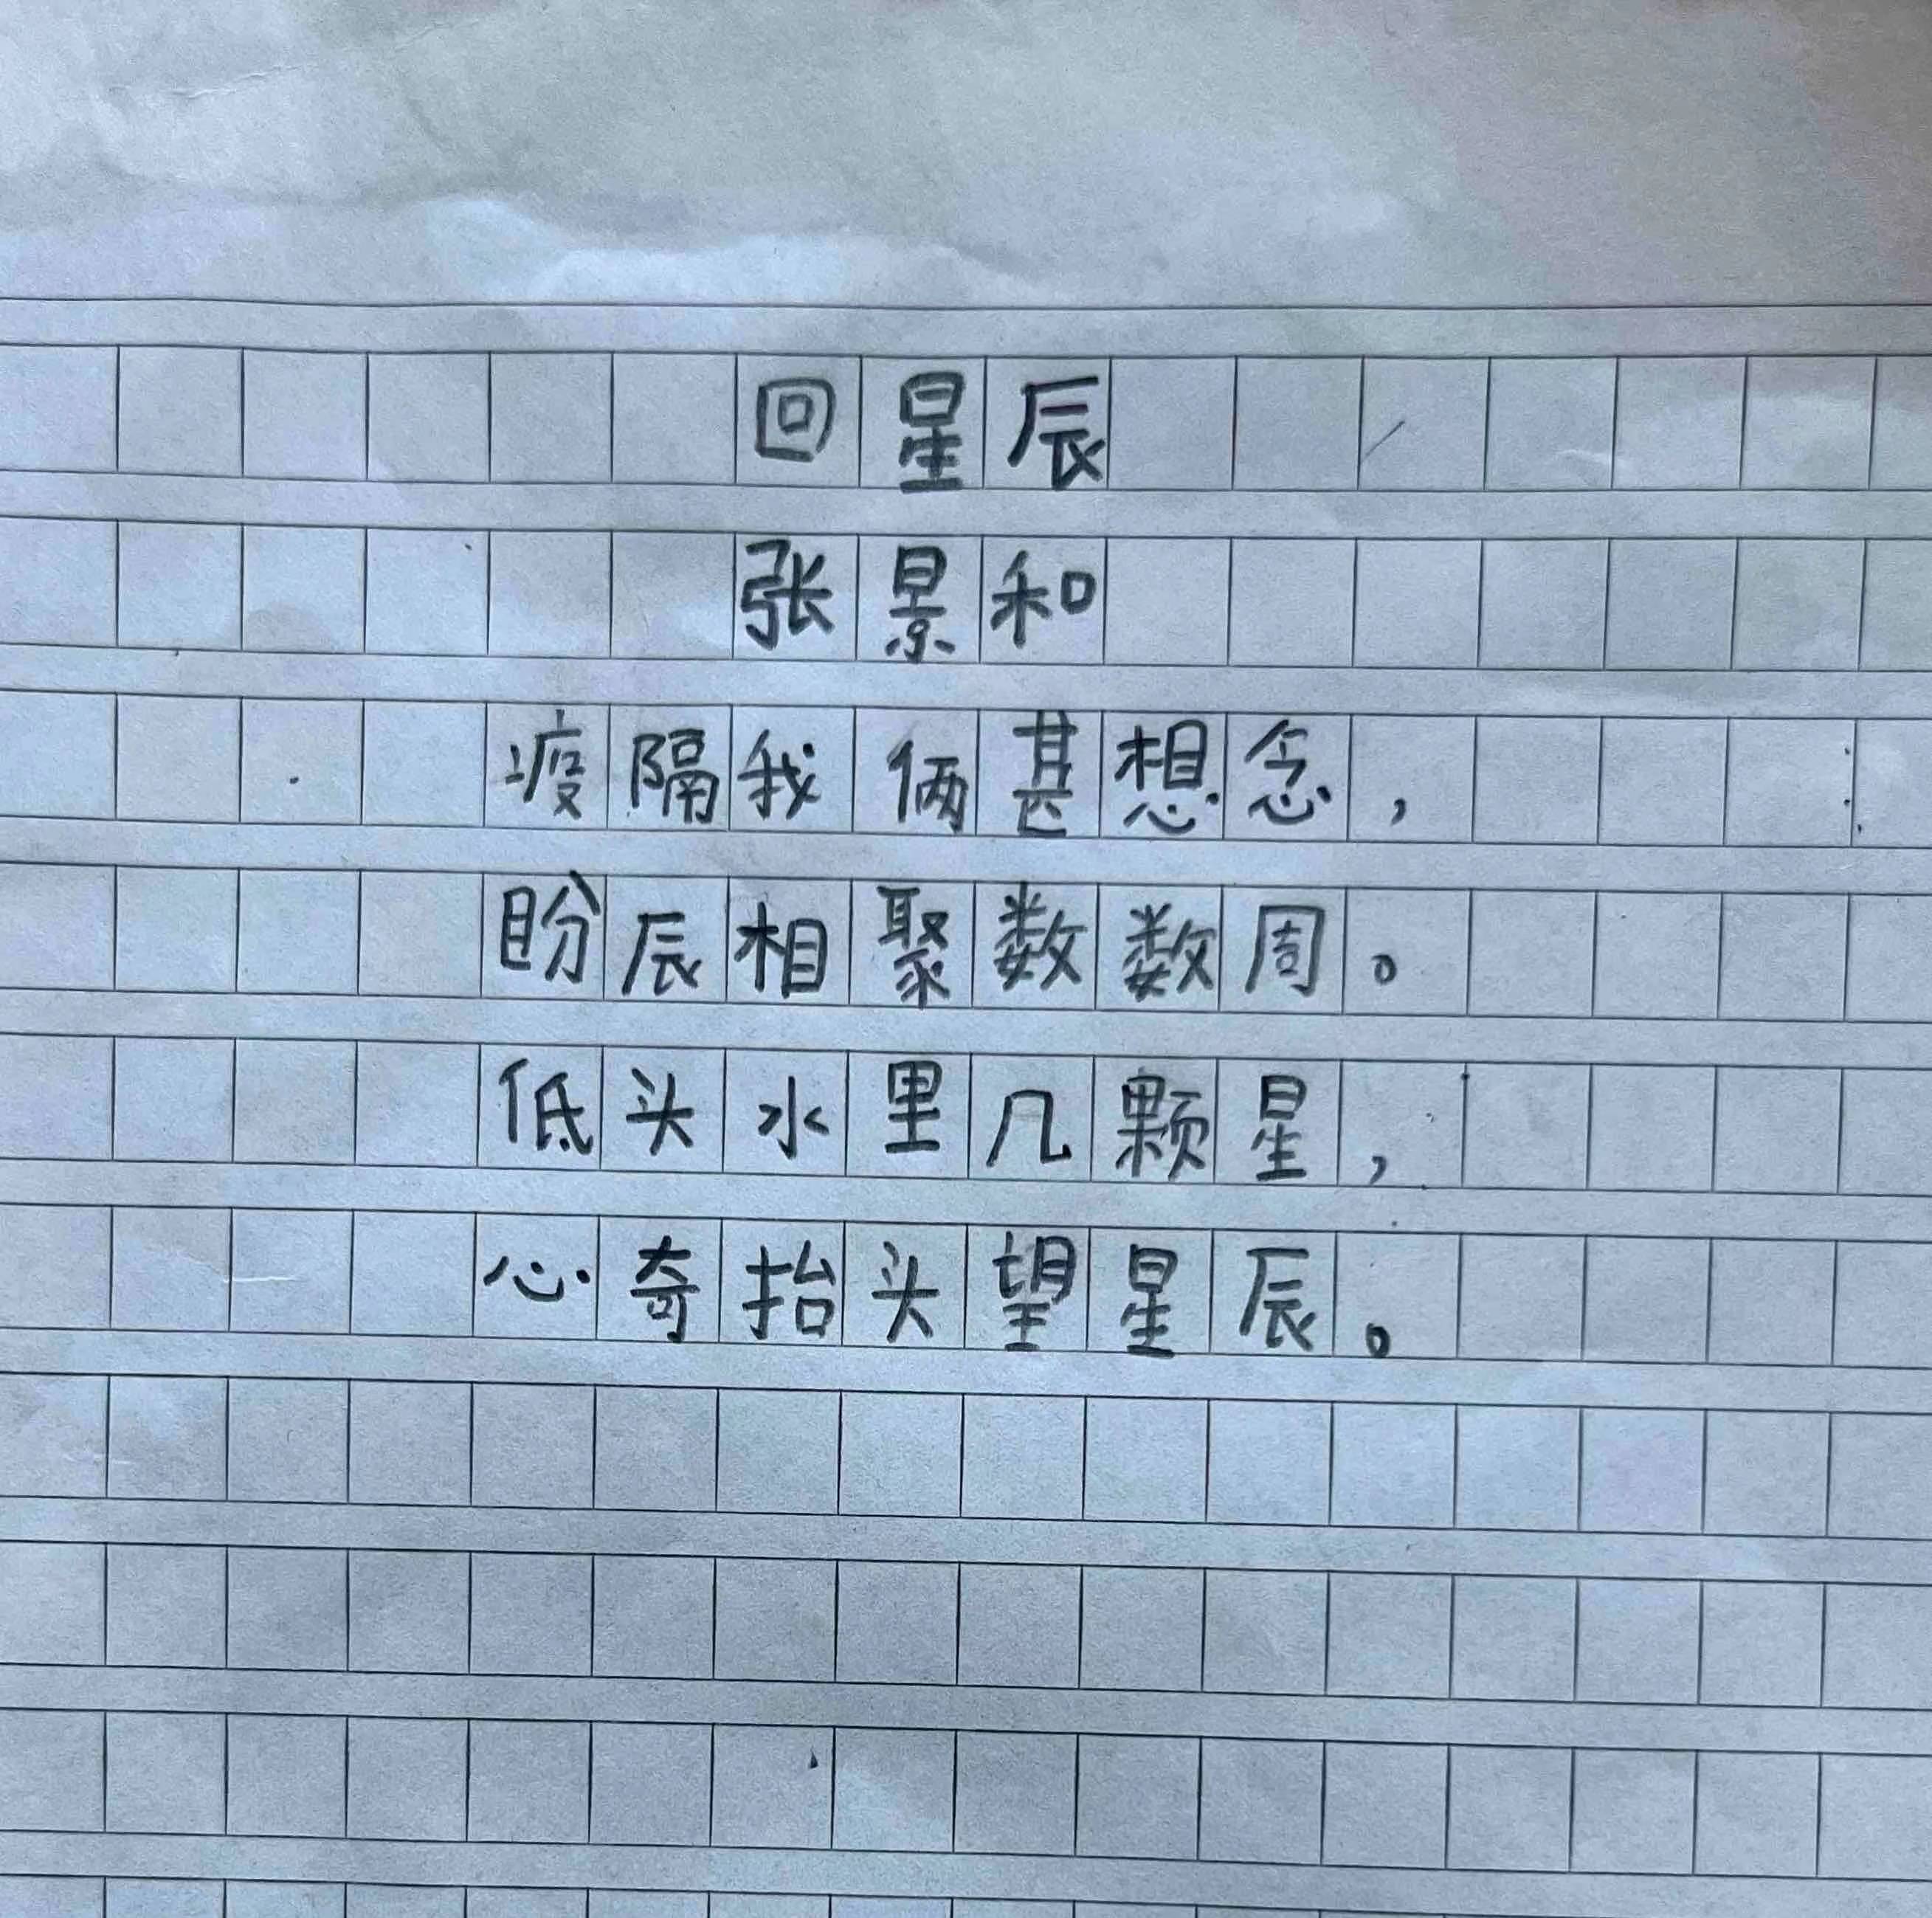 回星辰
张景和
疫隔我俩甚想念，
盼辰相聚数数周。
低头水里几颗星，
心奇抬头望星辰。